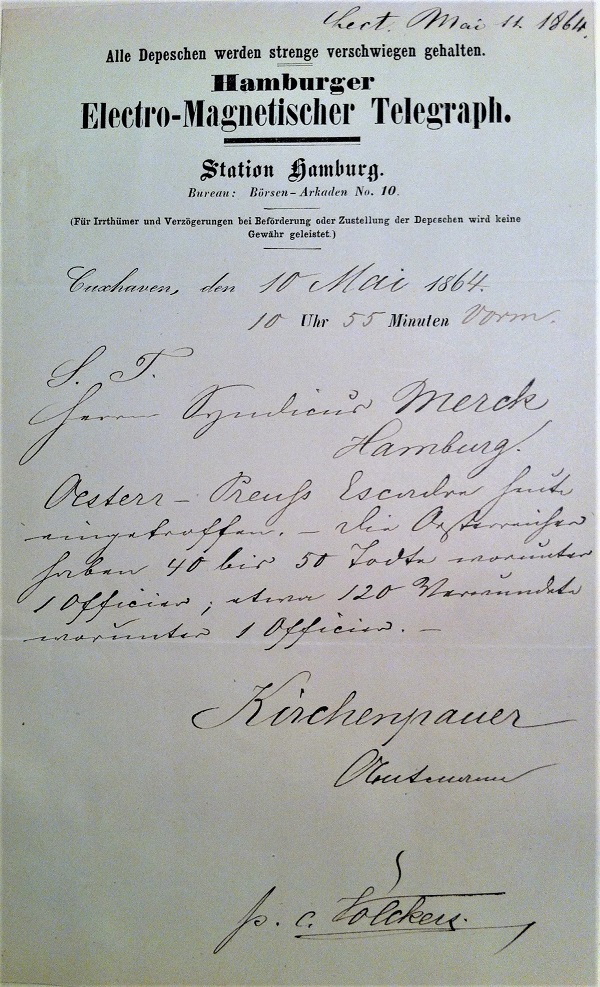 Lect. Mai 11. 1864.
Alle Depeschen werden strenge verschwiegen gehalten.
Hamburger
Electro-Magnetischer Telegraph.
Station Hamburg.
Bureau: Börsen-Arkaden No. 10.
(Für Irrthümer und Verzögerungen bei Beförderung oder Zustellung der Depeschen wird keine
Gewähr geleistet.)
Cuxhaven, den 10 Mai 1864.
10 Uhr 55 Minuten Vorm.
S. T.
Herrn Syndicus Merck
Hamburg.
Oesterr - Preuß Escadre heute
eingetroffen. - Die Oesterreicher
haben 40 bis 50 Todte worunter
1 Officier; etwa 120 Verwundete
worunter 1 Officier. -
Kirchenpauer
Amtmann
p. c. Völckers.